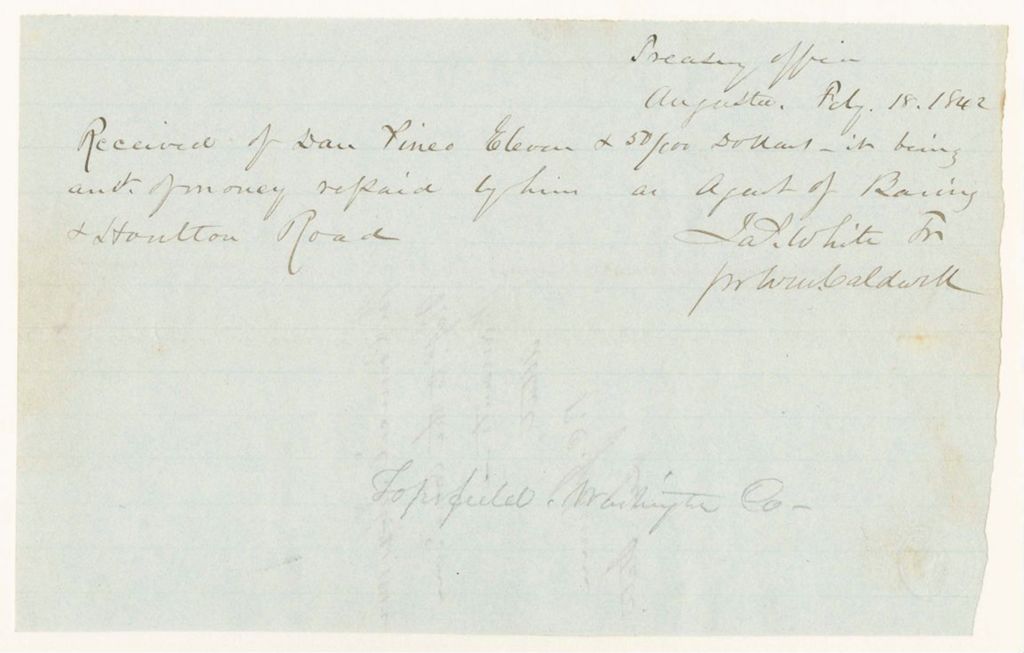 Treasury office
Augusta. Feby. 18. 1842
Received of Dan Pineo Eleven & 50/100 Dollars - it being
amt. of money repaid by him as Agent of Baring
& Houlton Road
White Tr
pr Wm Caldwell
Topsfield. Washington Co -